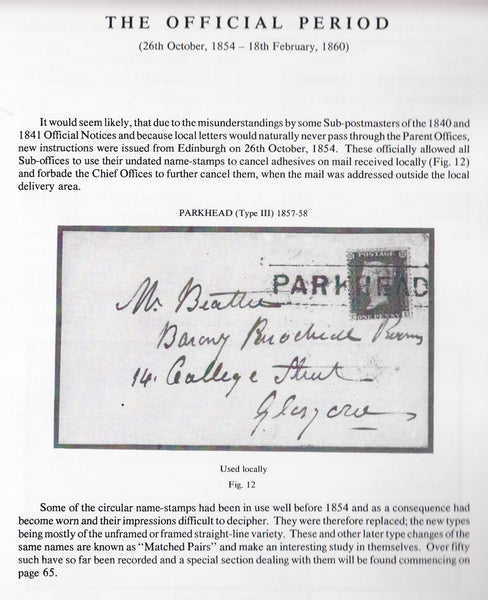 THE OFFICIAL PERIOD
(26th October, 1854 – 18th February, 1860)
It would seem likely, that due to the misunderstandings by some Sub-postmasters of the 1840 and
1841 Official Notices and because local letters would naturally never pass through the Parent Offices,
new instructions were issued from Edinburgh on 26th October, 1854. These officially allowed all
Sub-offices to use their undated name-stamps to cancel adhesives on mail received locally (Fig. 12)
and forbade the Chief Offices to further cancel them, when the mail was addressed outside the local
delivery area.
PARKHEAD (Type III) 1857-58
POSTAGE
PARKHEAD
ONE PENNY
Mr Beattie
Barony Parochial Rooms
14. College Street
Glasgow
Used locally
Fig. 12
Some of the circular name-stamps had been in use well before 1854 and as a consequence had
become worn and their impressions difficult to decipher. They were therefore replaced; the new types
being mostly of the unframed or framed straight-line variety. These and other later type changes of the
same names are known as “Matched Pairs” and make an interesting study in themselves. Over fifty
such have so far been recorded and a special section dealing with them will be found commencing on
page 65.